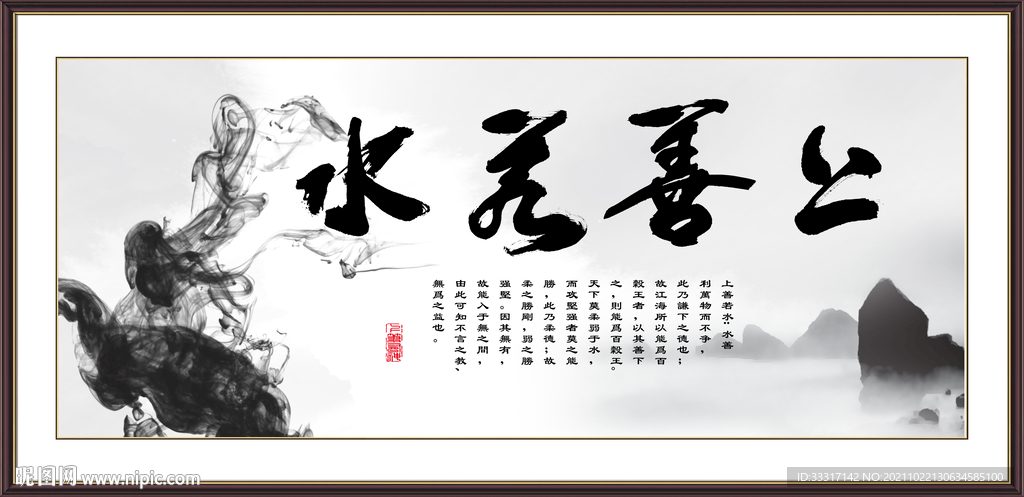 上善若水
上善若水:水善
利萬物而不争,
此乃謙下之德也;
故江海所以能爲百
穀王者,以其善下
之,則能爲百穀王。
天下莫柔弱于水,
而攻堅强者莫之能
勝,此乃柔德;故
柔之勝剛,弱之勝
强堅。因其無有,
故能入于無之間,
由此可知不言之教、
無爲之益也。
昵图网 www.nipic.com
ID:33317142 NO:20211022130634585100